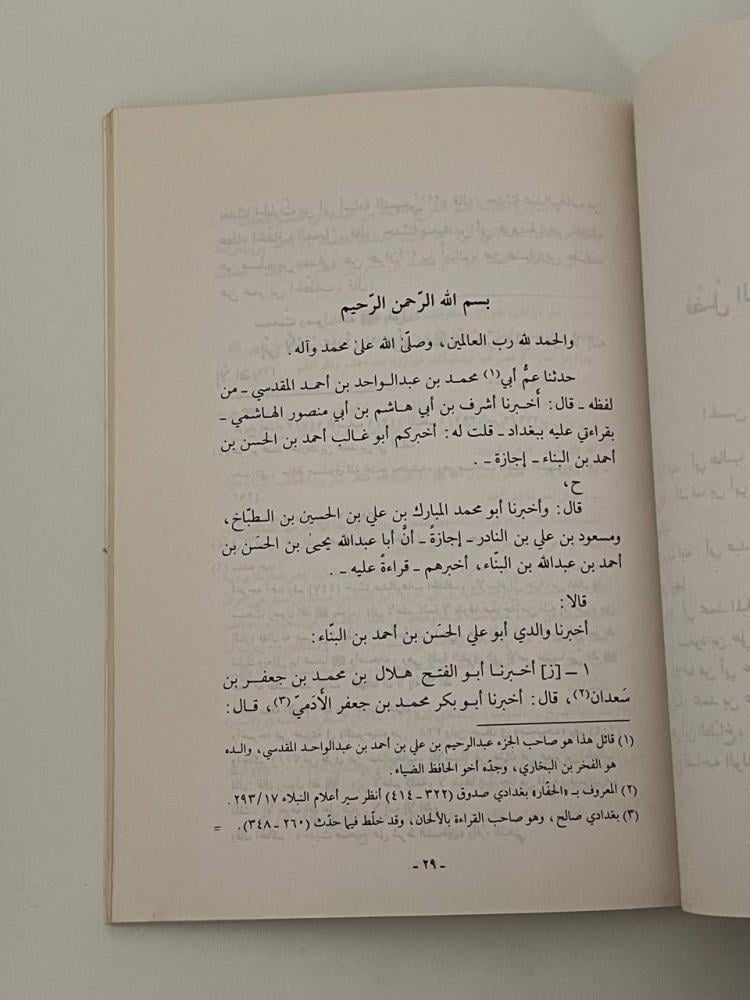 بسم الله الرّحمن الرّحيم
والحمد لله رب العالمين، وصلّىٰ الله علىٰ محمد وآله .
حدثنا عمُّ أبي(١) محمد بن عبدالواحد بن أحمد المقدسي ـ من
لفظه ـ قال: أَخبرنا أشرف بن أبي هاشم بن أبي منصور الهاشمي ـ
بقراءتي عليه ببغداد ـ قلت له: أخبركم أبو غالب أحمد بن الحسن بن
أحمد بن البناء ـ إجازة ـ .
ح،
قال: وأخبرنا أبو محمد المبارك بن علي بن الحسين بن الطبّاخ،
ومسعود بن علي بن النادر ـ إجازةً ـ أنَّ أبا عبدالله يحيىٰ بن الحسَن بن
أحمد بن عبدالله بن البنّاء، أخبرهم ـ قراءةً عليه ـ .
قالا:
أخبرنا والدي أبو علي الحسَن بن أحمد بن البنّاء:
١ ـ [ز] أخبرنا أبو الفتح هلال بن محمد بن جعفر بن
سَعدان(٢)، قال: أخبرنا أبو بكر محمد بن جعفر الأَدَميّ(٣)، قال:
(١) قائل هذا هو صاحب الجزء عبدالرحيم بن علي بن أحمد بن عبدالواحد المقدسي، والده
هو الفخر بن البخاري، وجدّه أخو الحافظ الضياء.
(٢) المعروف بـ «الحفّار» بغدادي صدوق (٣٢٢ ـ ٤١٤) أنظر سير أعلام النبلاء ٢٩٣/١٧.
(٣) بغدادي صالح، وهو صاحب القراءة بالألحان، وقد خلّط فيما حدّث (٢٦٠ ـ ٣٤٨). =
- ٢٩ -